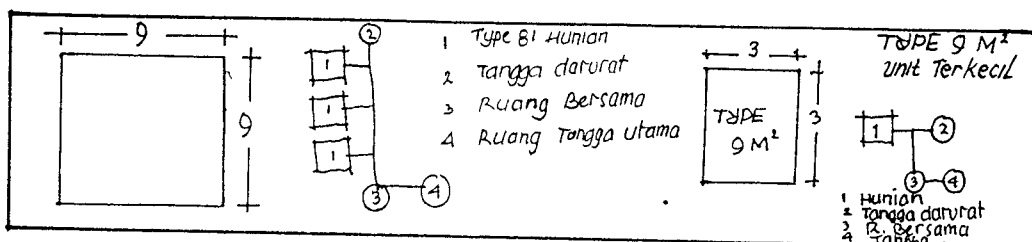 9
9
2
1
1
1
3
4
1 Type 81 Hunian
2 Tangga darurat
3 Ruang Bersama
4 Ruang Tangga Utama
3
3
TYPE
9 M²
TYPE 9 M²
Unit Terkecil
1
2
3
4
1 Hunian
2 Tangga darurat
3 R. Bersama
4 Tangga